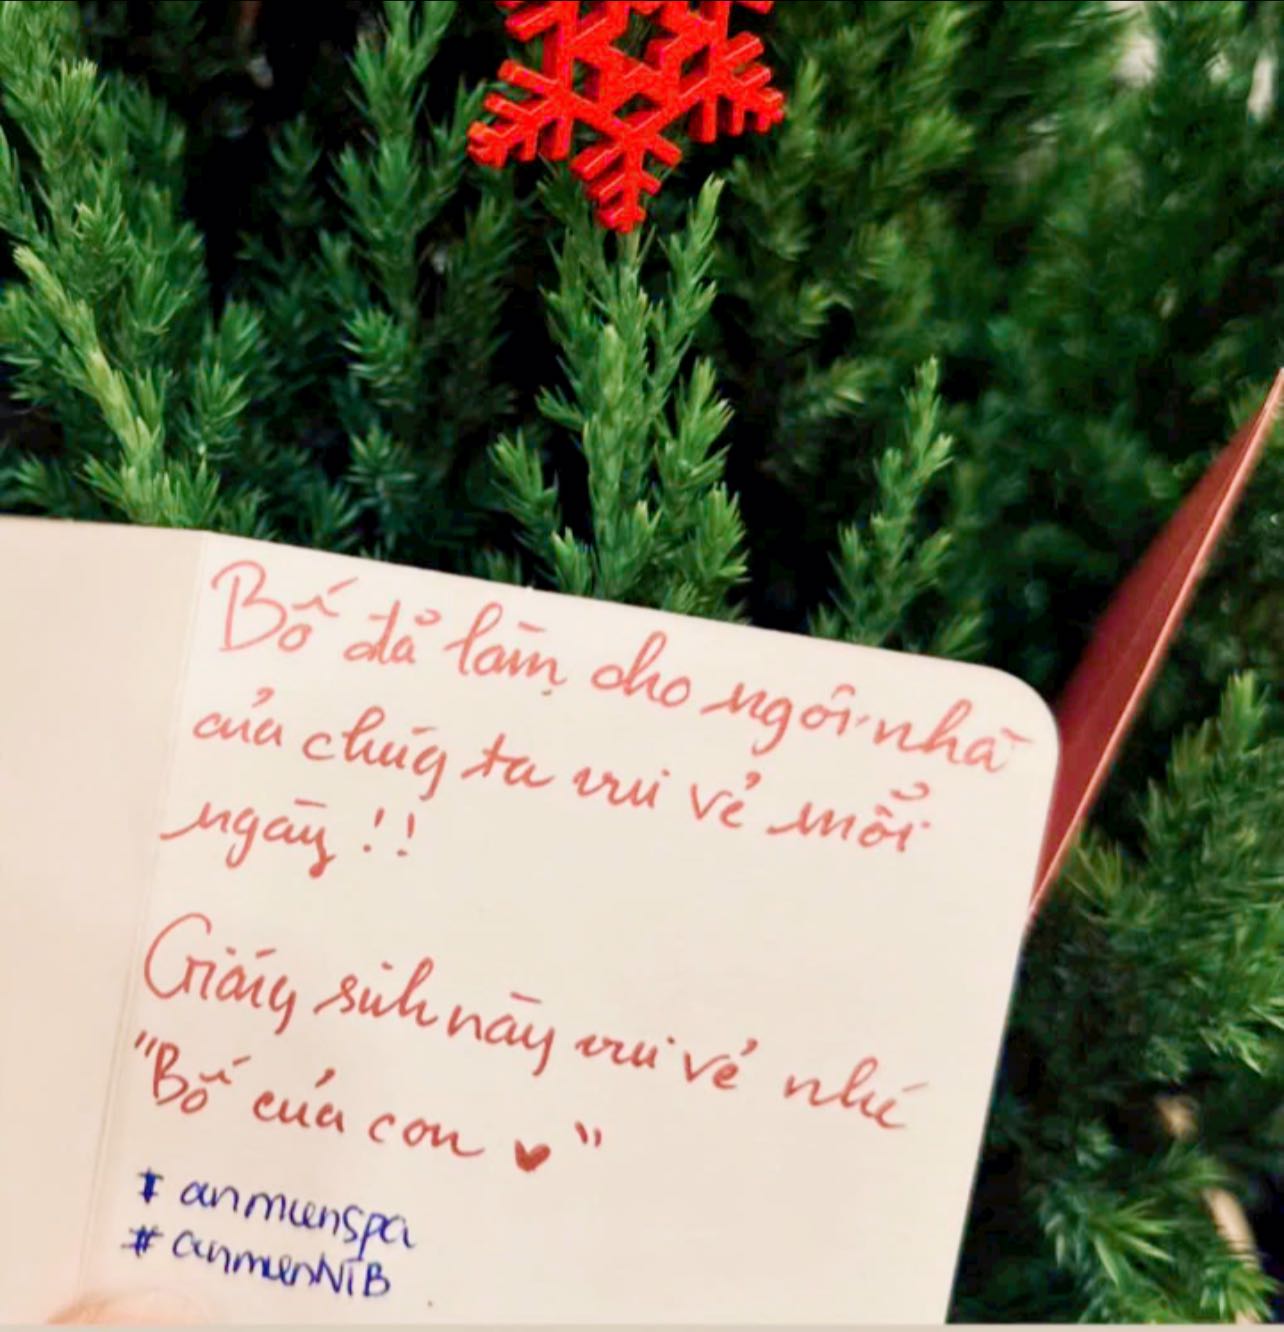 Bố đã làm cho ngôi nhà
của chúng ta vui vẻ mỗi
ngày !!
Giáng sinh này vui vẻ nhé
"Bố của con ♥"
# anmienspa
# anmienNTB